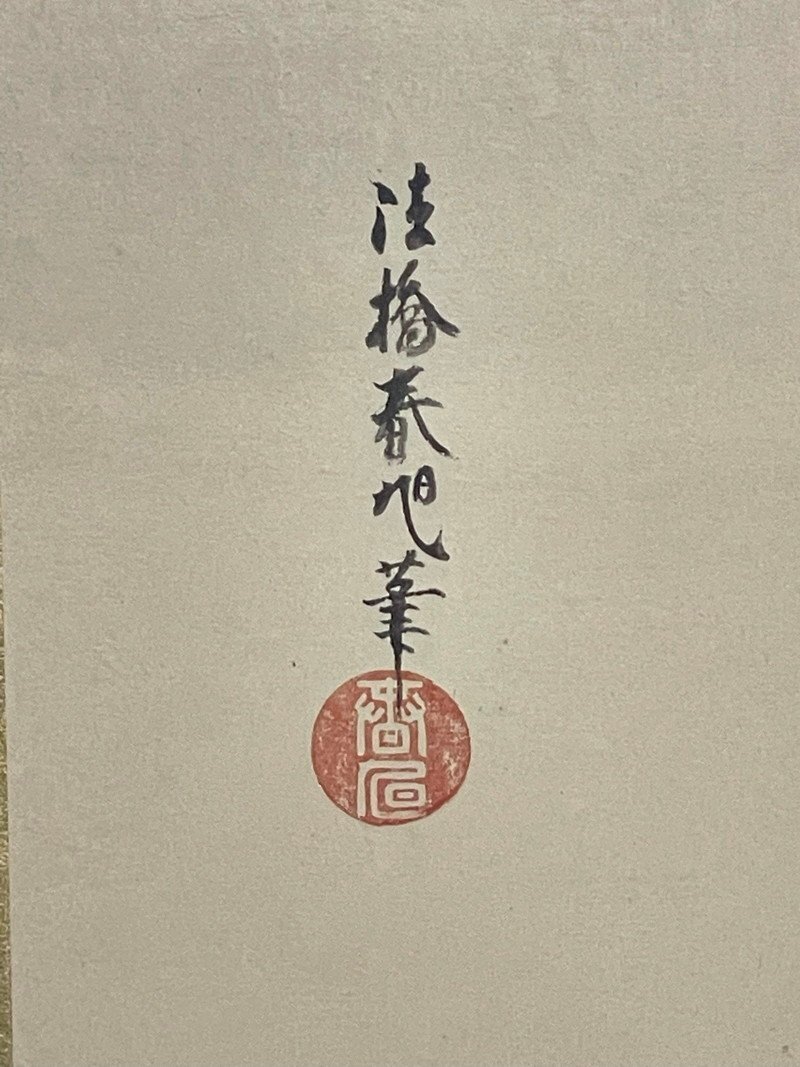 法橋春旭筆